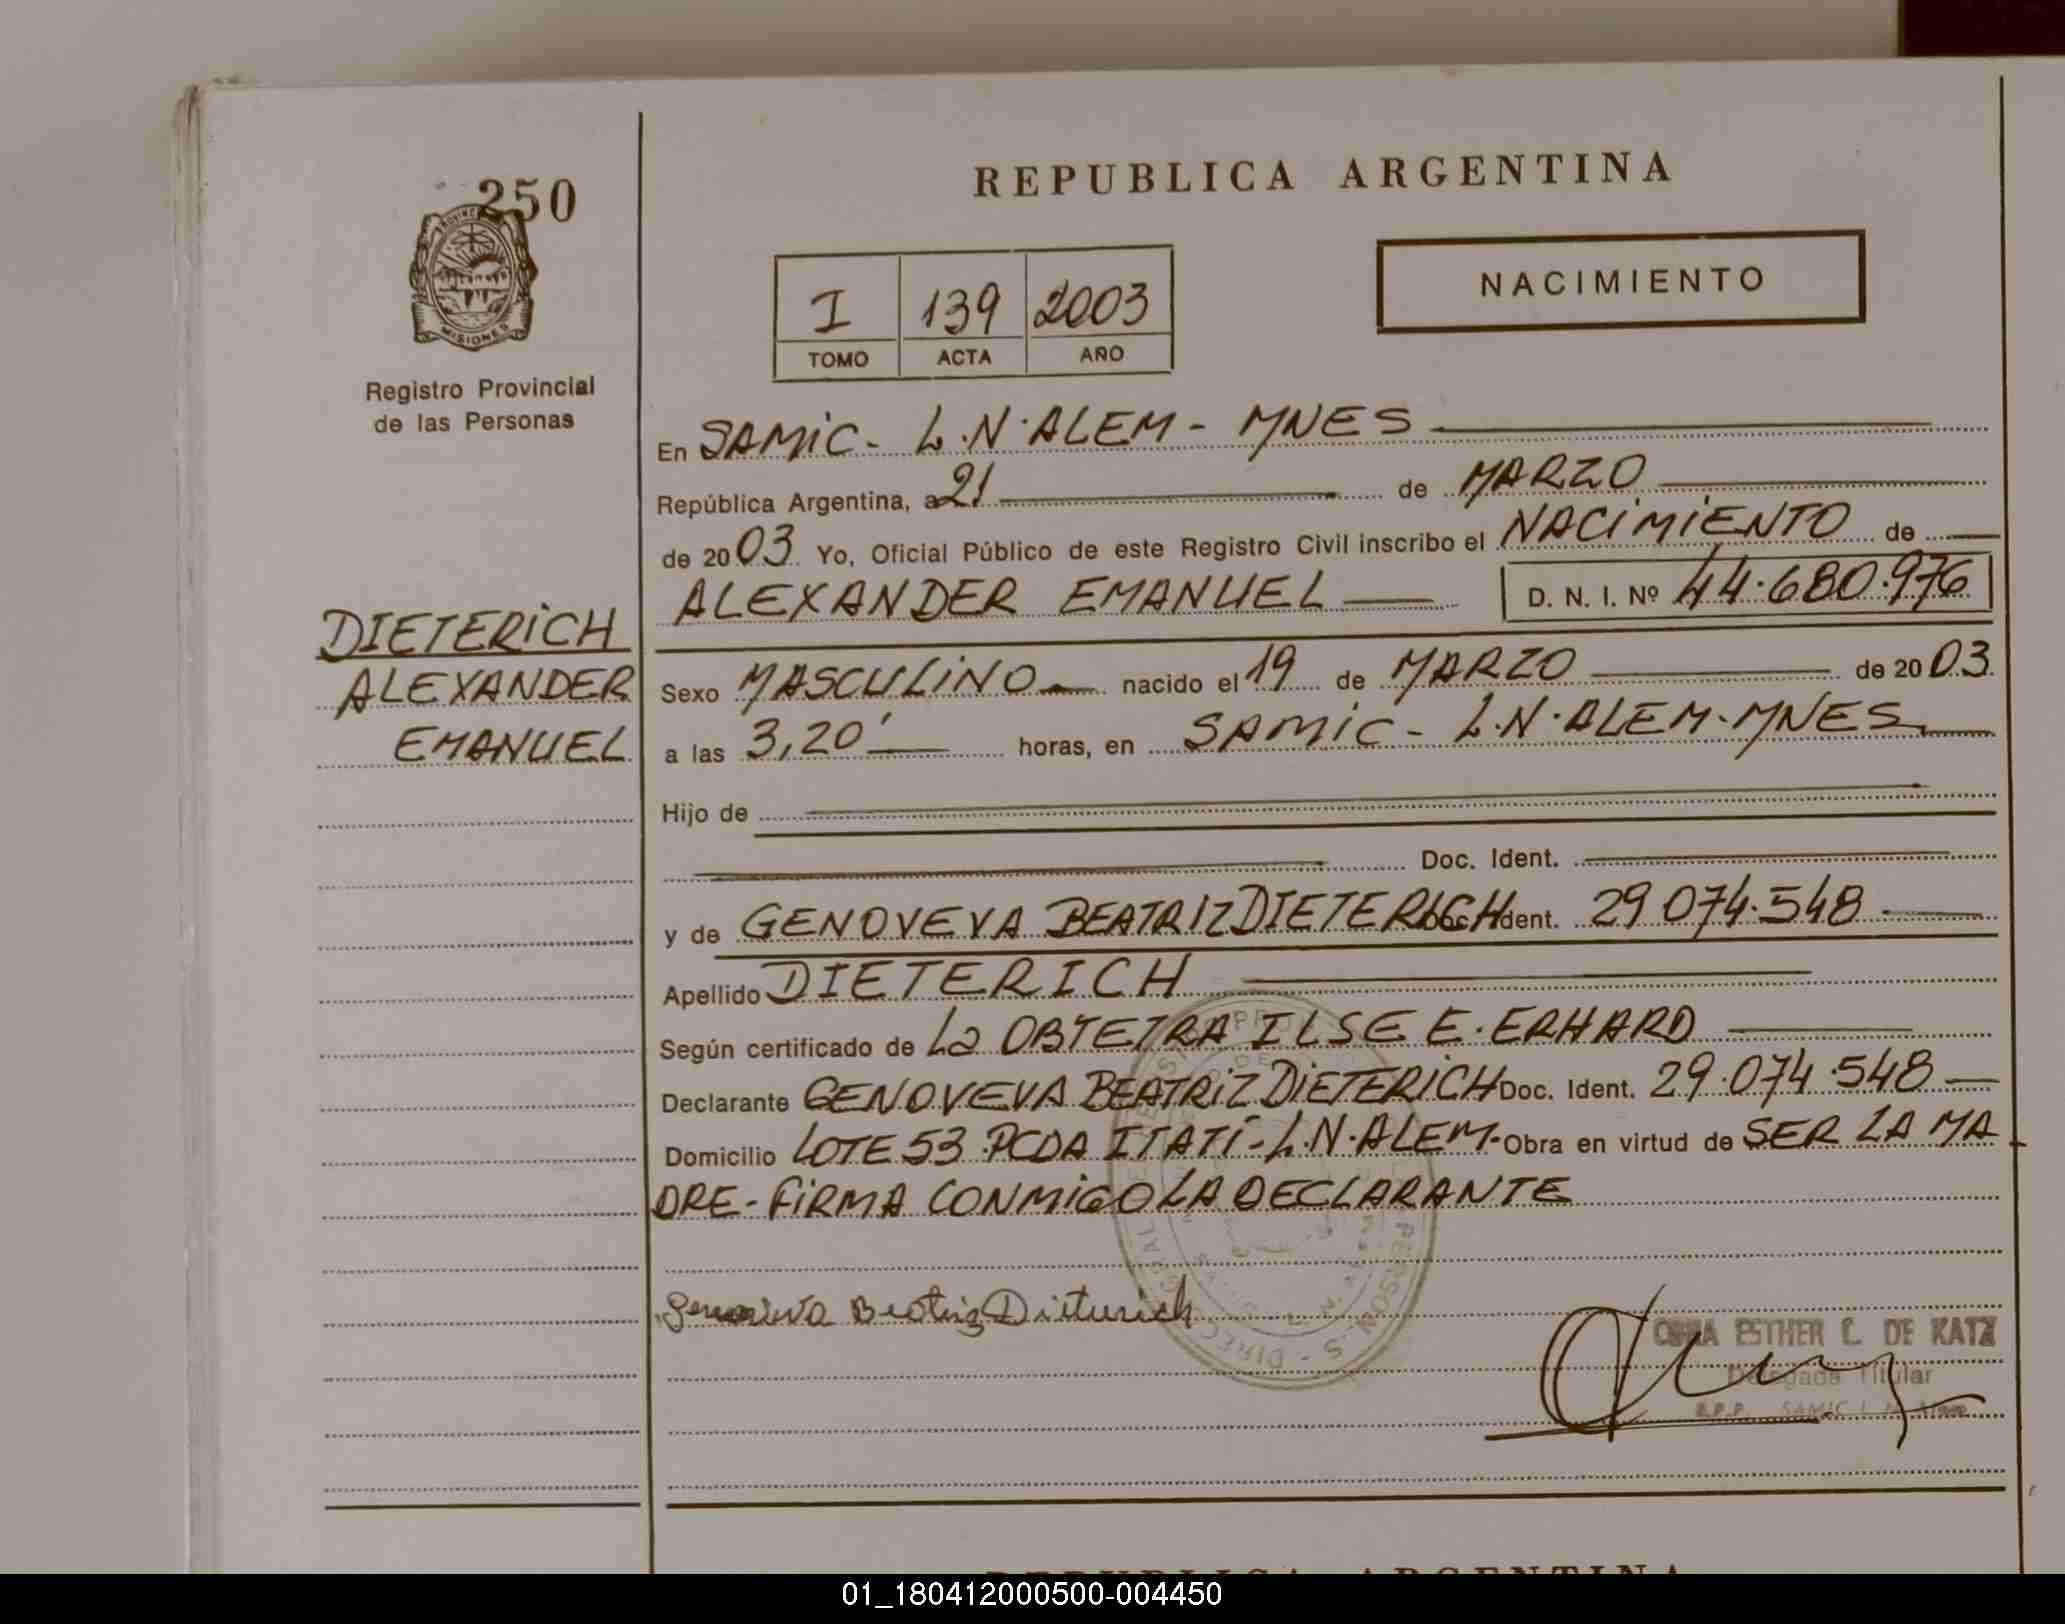 250
PROVINCIA
MISIONES
Registro Provincial
de las Personas
DIETERiCH
ALEXANDER
EMANUEL
REPUBLICA ARGENTINA
I 139 2003
TOMO ACTA AÑO
NACIMIENTO
En SAMiC - L.N.ALEM - MNES
República Argentina, a 21 de MARZO
de 2003 Yo, Oficial Público de este Registro Civil inscribo el NACiMiENTO de
ALEXANDER EMANUEL D. N. I. Nº 44.680.976
Sexo MASCULiNO nacido el 19 de MARZO de 2003
a las 3,20' horas, en SAMiC - L.N.ALEM.MNES
Hijo de
Doc. Ident.
y de GENOVEVA BEATRIZ DIETERICH Doc. Ident. 29.074.548
Apellido DIETERICH
Según certificado de La OBTETRA ILSE E. ERHARD
Declarante GENOVEVA BEATRiZ DiETERiCH Doc. Ident. 29.074.548
Domicilio LOTE 53 PCDA ITATÍ - L.N.ALEM. Obra en virtud de SER LA MA
DRE - FiRMA CONMiGO LA DECLARANTE
Genoveva Beatriz Dieterich
ESTHER C. DE KATZ
Delegada Titular
R.P.P. SAMIC L. N. Alem
REPUBLICA ARGENTINA
01_180412000500-004450